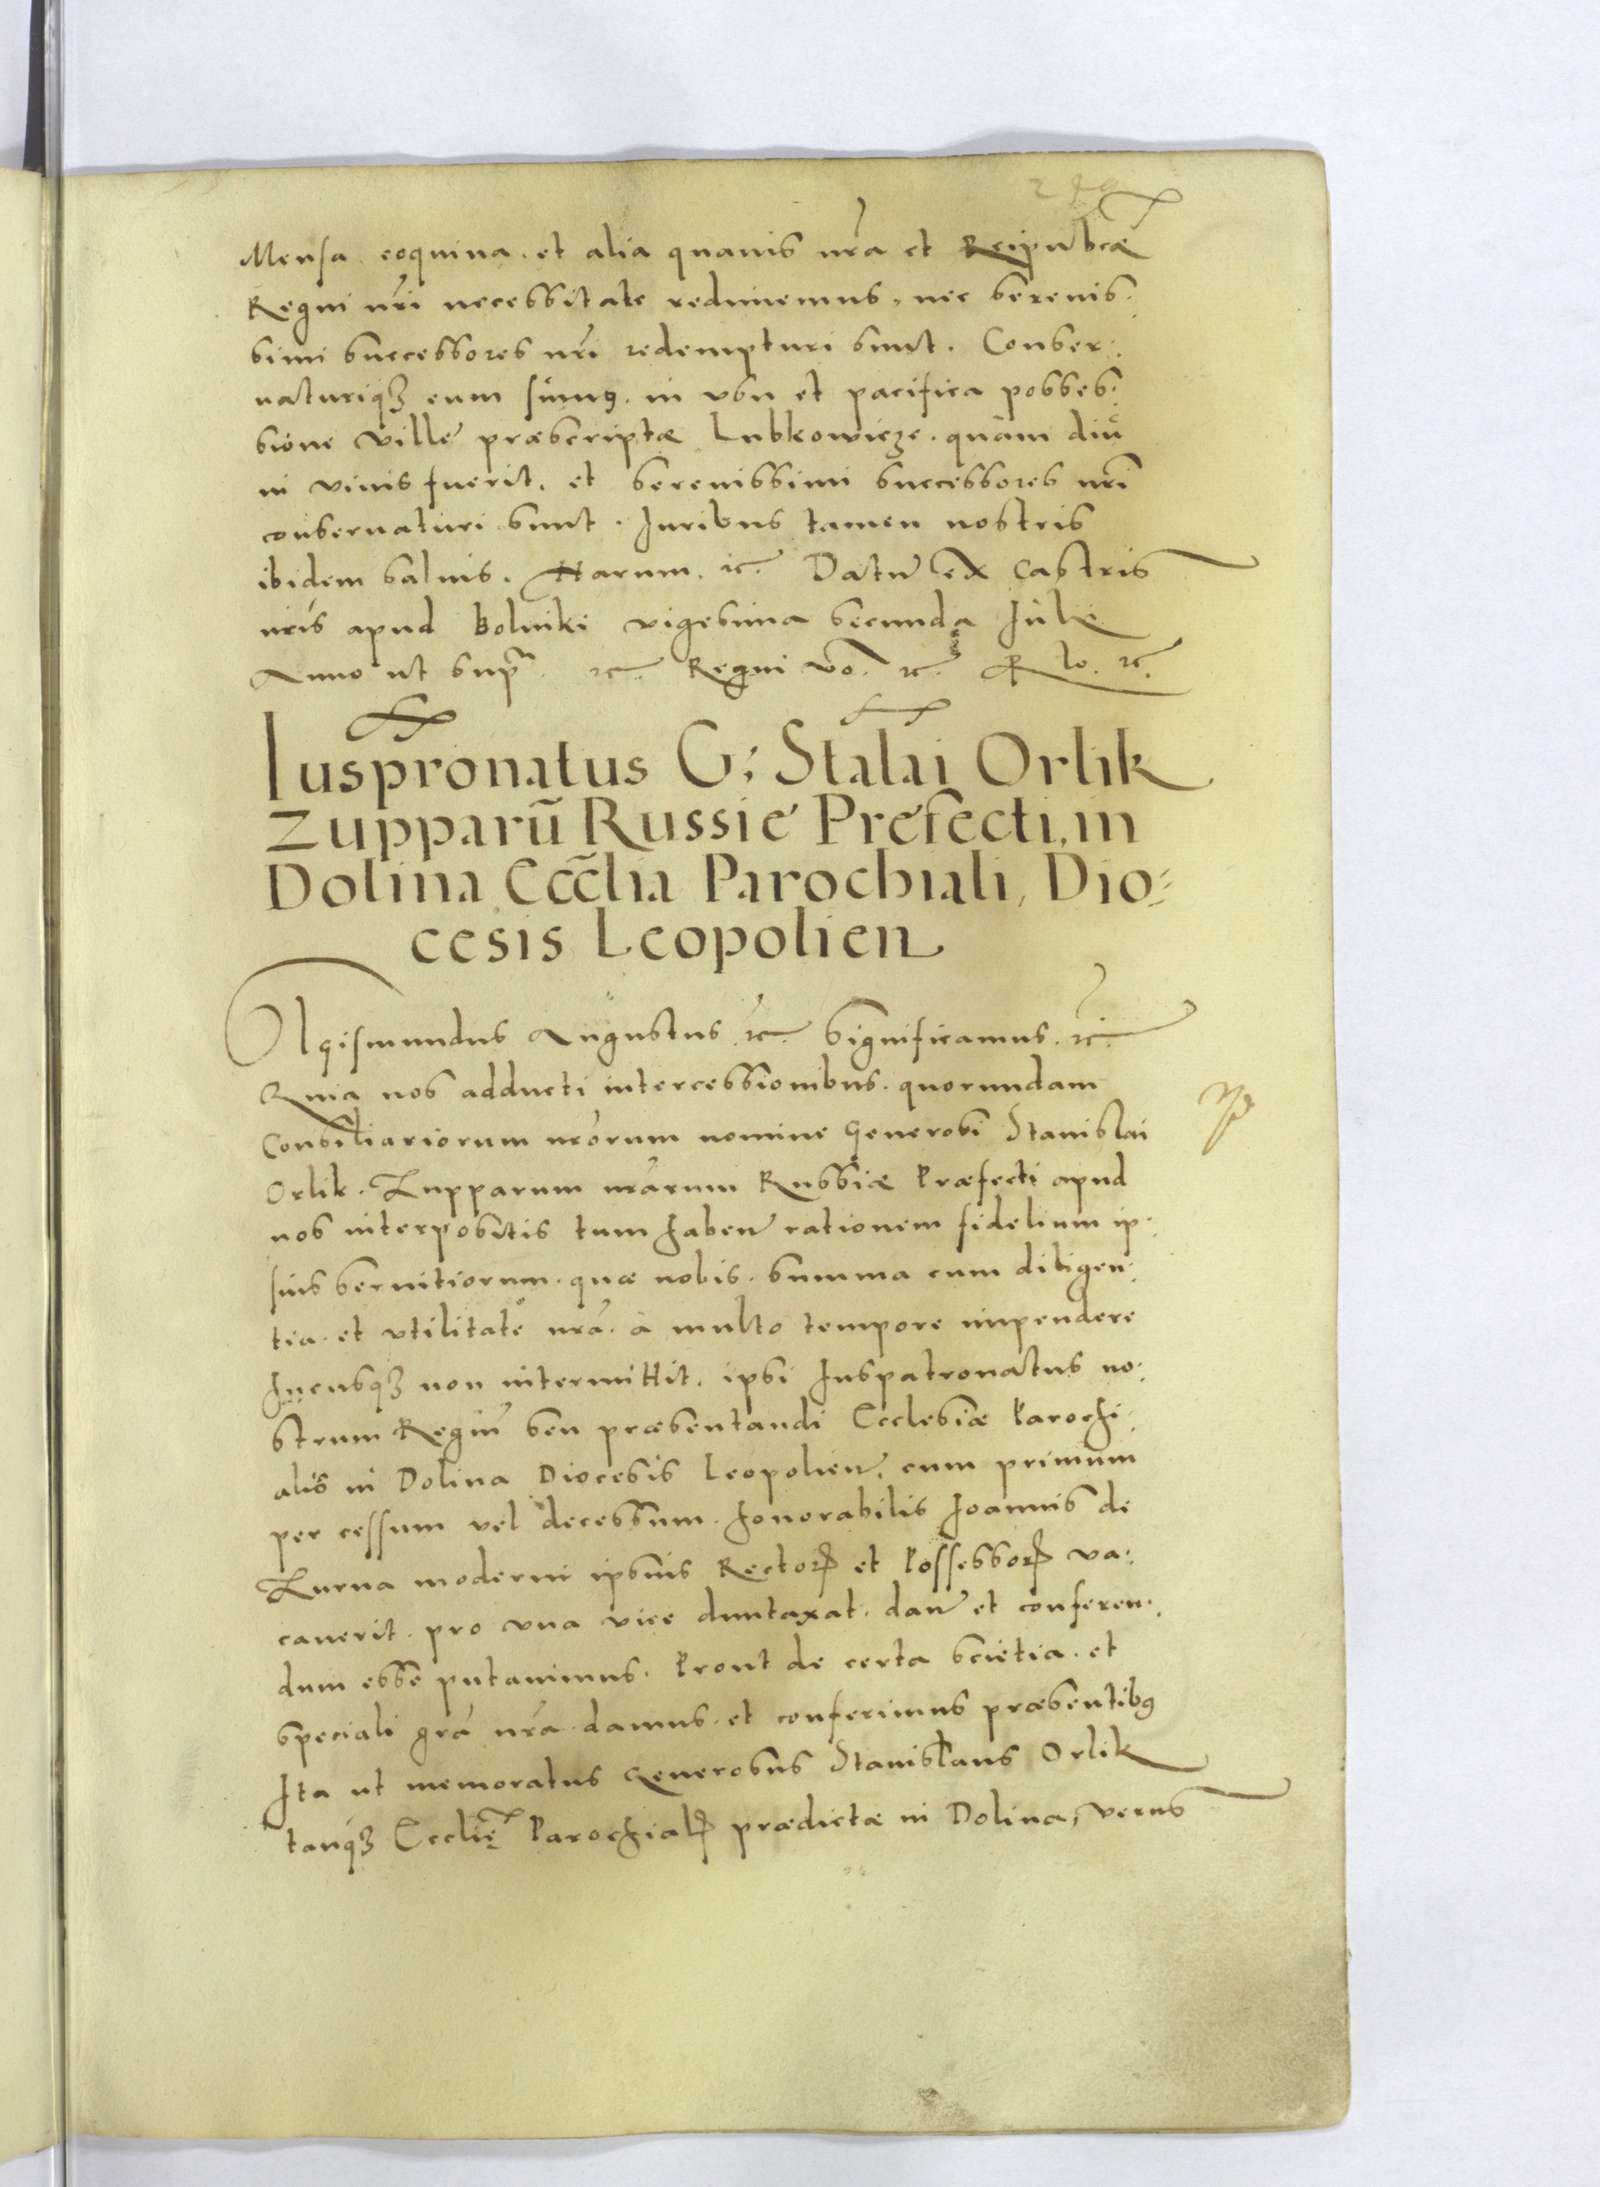 Mensa. coquina. et alia quauis nr̃a et Reipub̃cæ
Regni nr̃i necessitate redimemus, nec serenis:
simi successores nr̃i redempturi sunt. Conser:
uaturiq₃ eum sum9. in vsu et pacifica posses:
sione villę præscriptæ Lubkowicze. quam diu
in viuis fuerit. et serenissimi successores nr̃i
conseruaturi sunt. Iuribus tamen nostris
ibidem saluis. Harum. ꝛc. Datũ ex Castris
nr̃is apud Bolniki vigesima secunda Iulii
Anno ut supr̃a. ꝛc. Regni vo. ꝛc. ꝛc.
Iuspronatus G: Stalai Orlik
Zupparũ Russię Pręfecti, in
Dolina Eccl̃ia Parochiali, Dio:
cesis Leopolien
Sigismundus Augustus ꝛc. Significamus. ꝛc.
Quia nos adducti intercessionibus. quorundam
Consiliariorum nr̃orum nomine Generosi Stanislai
Orlik. Zupparum nr̃arum Russiæ Præfecti apud
nos interpositis tum haben̄ rationem fidelium ip:
sius seruitiorum. quæ nobis. summa cum diligen:
tia. et vtilitate nr̃a. à multo tempore impendere
hucusq₃ non intermittit. ipsi Iuspatronatus no:
strum Regiũ seu præsentandi Ecclesiæ Parochi:
alis in Dolina Diocesis Leopolien̄. cum primum
per cessum vel decessum. honorabilis Ioannis de
Zurna moderni ipsius Rectorꝭ et Possessorꝭ va:
cauerit. pro vna vice duntaxat. dan̄ et conferen:
dum esse putauimus. Prout de certa sciẽtia. et
speciali gr̃a nr̃a. damus. et conferimus præsentib9
Ita ut memoratus Generosus Stanislaus Orlik
tanq₃ Eccl̃ię Parochialꝭ prædictæ in Dolina, verus